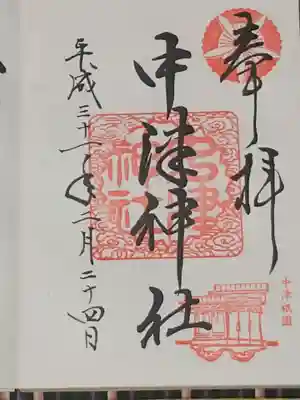 奉拝
中津神社
平成三十一年二月二十四日
中津神社
中津祇園